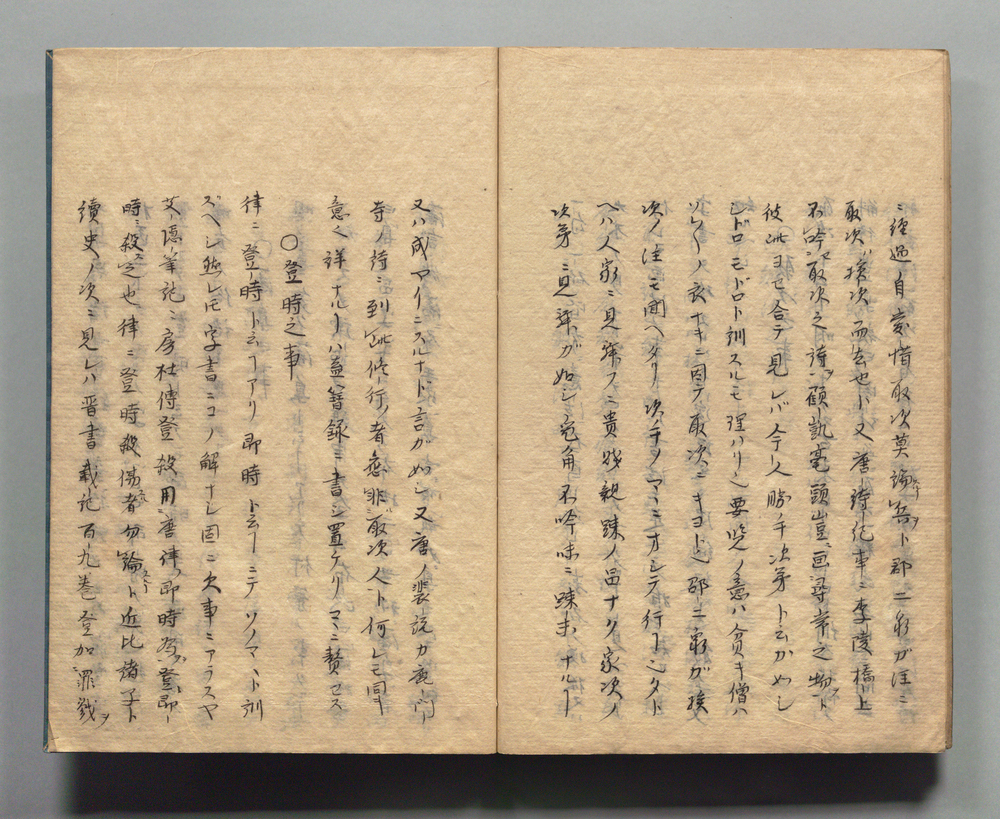 ニ經過ノ自愛惜取次莫論兵ト郡二泉ガ注ニ
取次ハ揆次而去也ト又唐詩紀事ニ李陵橋上
不吟取次之詩顧凱毫頭豈画尋常之物ト
彼此ヨセ合テ見レバ今人勝手次第ト云カ如シ
シドロモドロト訓スルモ理ハリ也要覧ノ意ハ貧キ僧ハ
ソレ〱ノ衣ナキニ因テ取次ニキヨト也邵二泉ガ揆
次ノ注モ聞ヘタリ次手ノマミニオシテ行ーシタト
ヘハ人家ニ見舞フニ貴賎親踈ノ畄ナク家次ノ
次第ニ見舞ガ如シ兎角不吟味ニ踈末ナルー
又ハ成マイニスルナト言ガ如シ又唐ノ裴説カ鹿門
寺ノ詩ニ到此修行ノ者應非取次人ト何レモ同キ
意也詳ナルーハ盍簪録ニ書シ置ケリマミ贅セス
〇登時之事
律ニ登時ト云ーアリ即時ト云ーニテソノマヽト訓
ズヘシ然レモ字書ニコノ解ナシ因ニ欠事ミアラスヤ
艾隠筆記ニ房杜傳登殺用唐律即時為登即
時殺之也律ニ登時殺傷者勿論ト近比諸子ト
續史ノ次ニ見レハ晋書載記百九巻登加罪戮